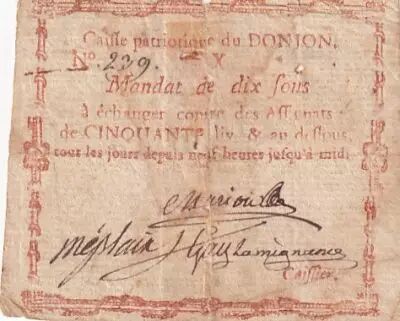 Caisse patriotique du DONJON.
No. 239. X
Mandat de dix sous
à échanger contre des Assignats
de CINQUANTE liv. & au dessous,
tous les jours depuis neuf heures jusqu'à midi.
Caissier.